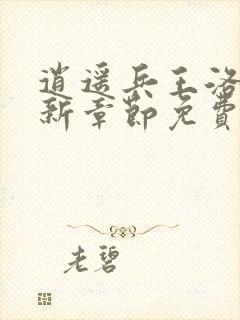 逍遥兵王洛
新章节免费
老碧